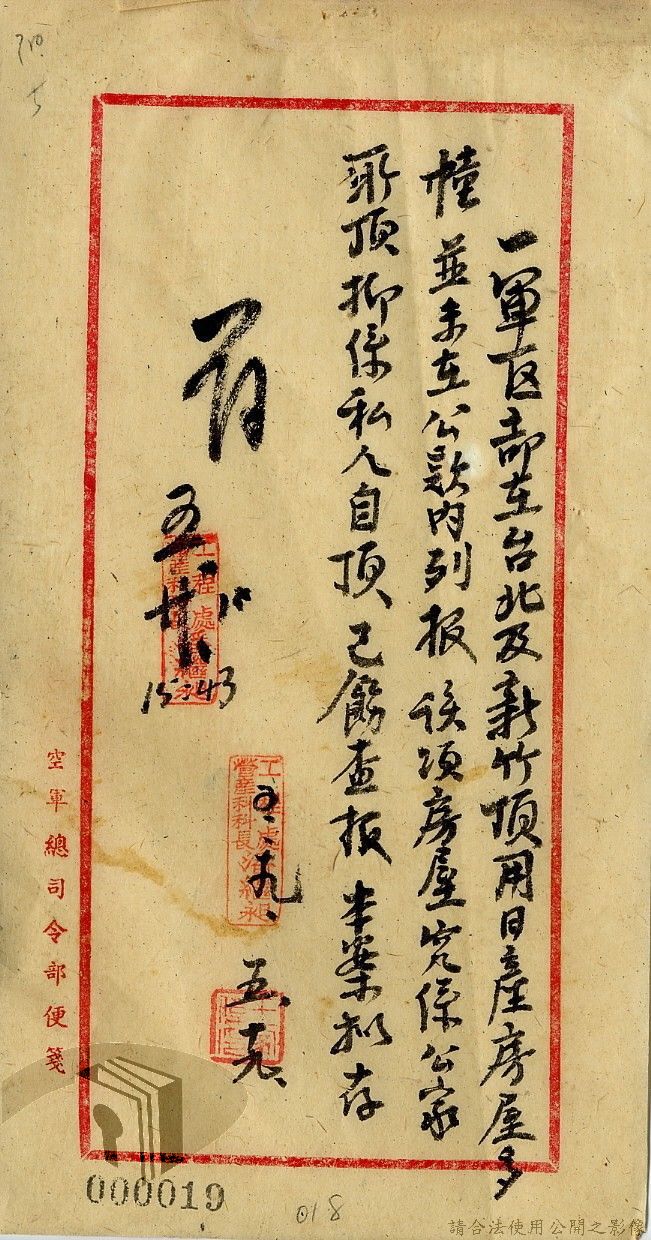 一軍区部在台北及新竹頂用日產房屋多
幢 並未在公款内列报 該項房屋究係公家
所頂抑係私人自頂、已飭查报 本案拟存
五、
15:43
工程處
營產科科長
五、九、
五、十九、
空軍總司令部便箋
000019
018
710
5
請合法使用公開之影像